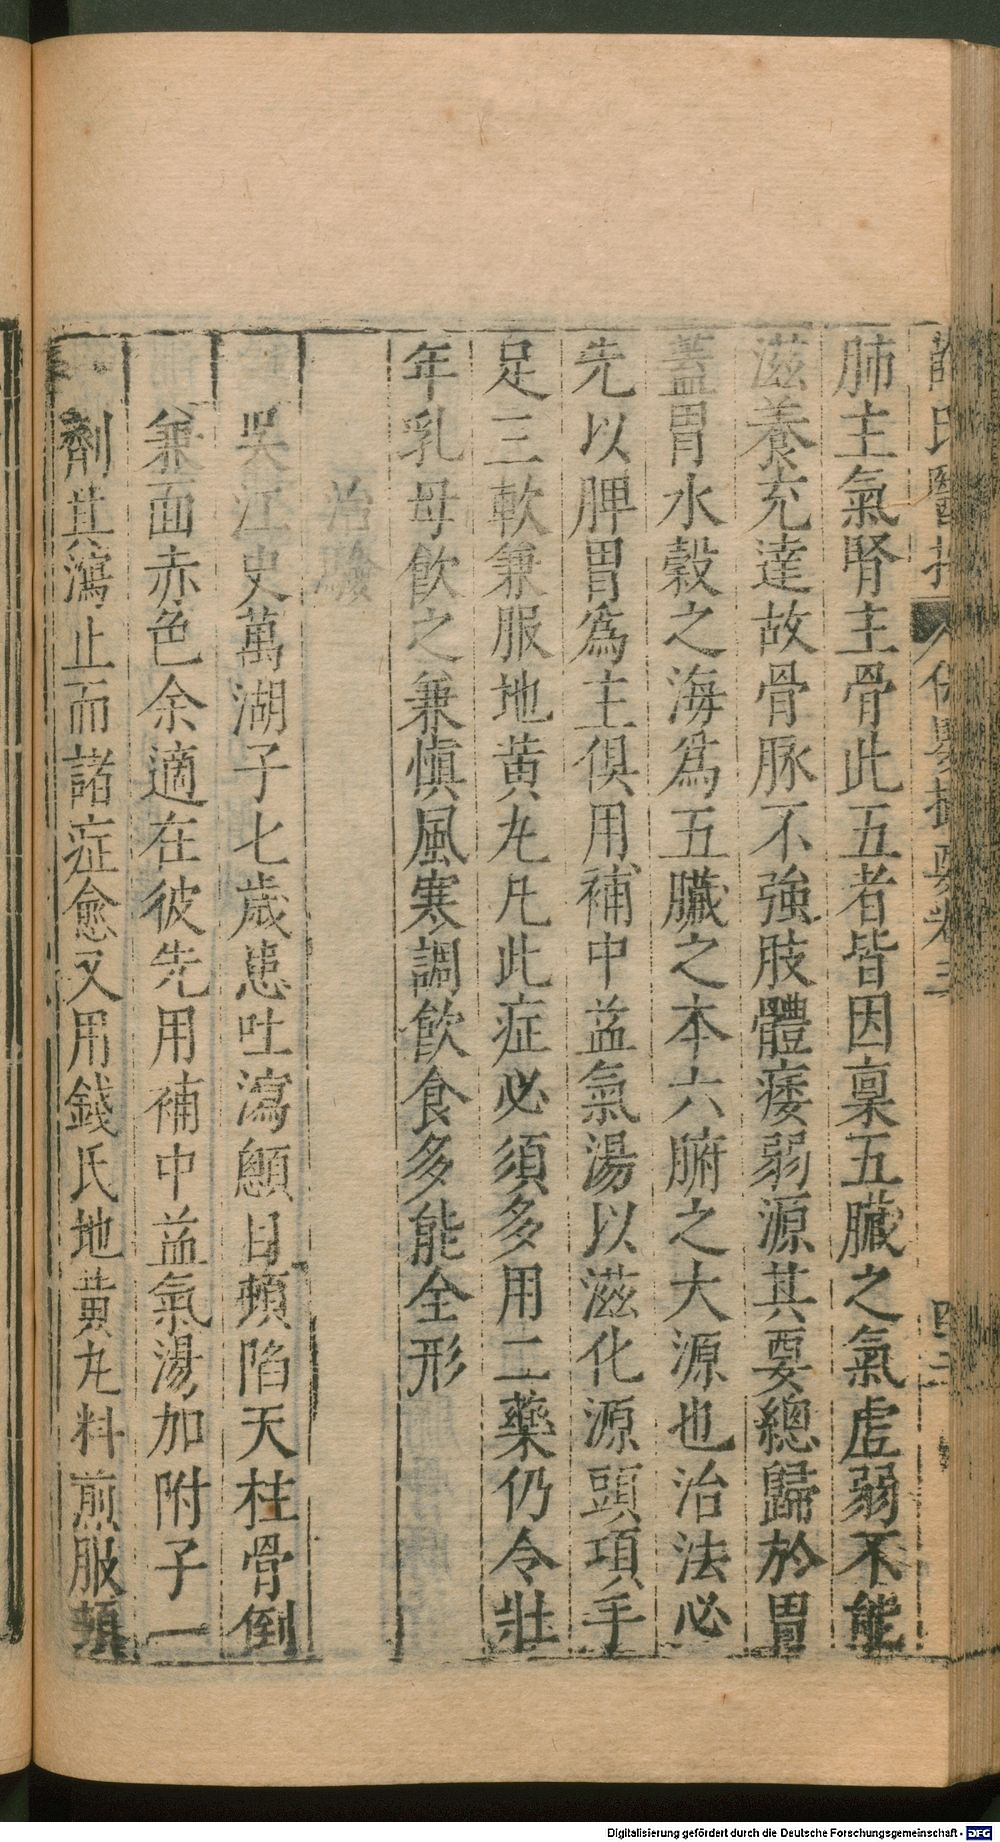 薛氏醫按 保嬰撮要卷三 四二
肺主氣腎主骨此五者皆因稟五臟之氣虛弱不能
滋養充達故骨脉不強肢體痿弱源其要總歸於胃
蓋胃水穀之海爲五臟之本六腑之大源也治法必
先以脾胃爲主俱用補中益氣湯以滋化源頭項手
足三軟兼服地黄丸凡此症必須多用二藥仍令壯
年乳母飲之兼慎風寒調飲食多能全形
治驗
吳江史萬湖子七歲患吐瀉顖目頓陷天柱骨倒
兼面赤色余適在彼先用補中益氣湯加附子一
劑其瀉止而諸症愈又用錢氏地黄丸料煎服頓
Digitalisierung gefördert durch die Deutsche Forschungsgemeinschaft - DFG